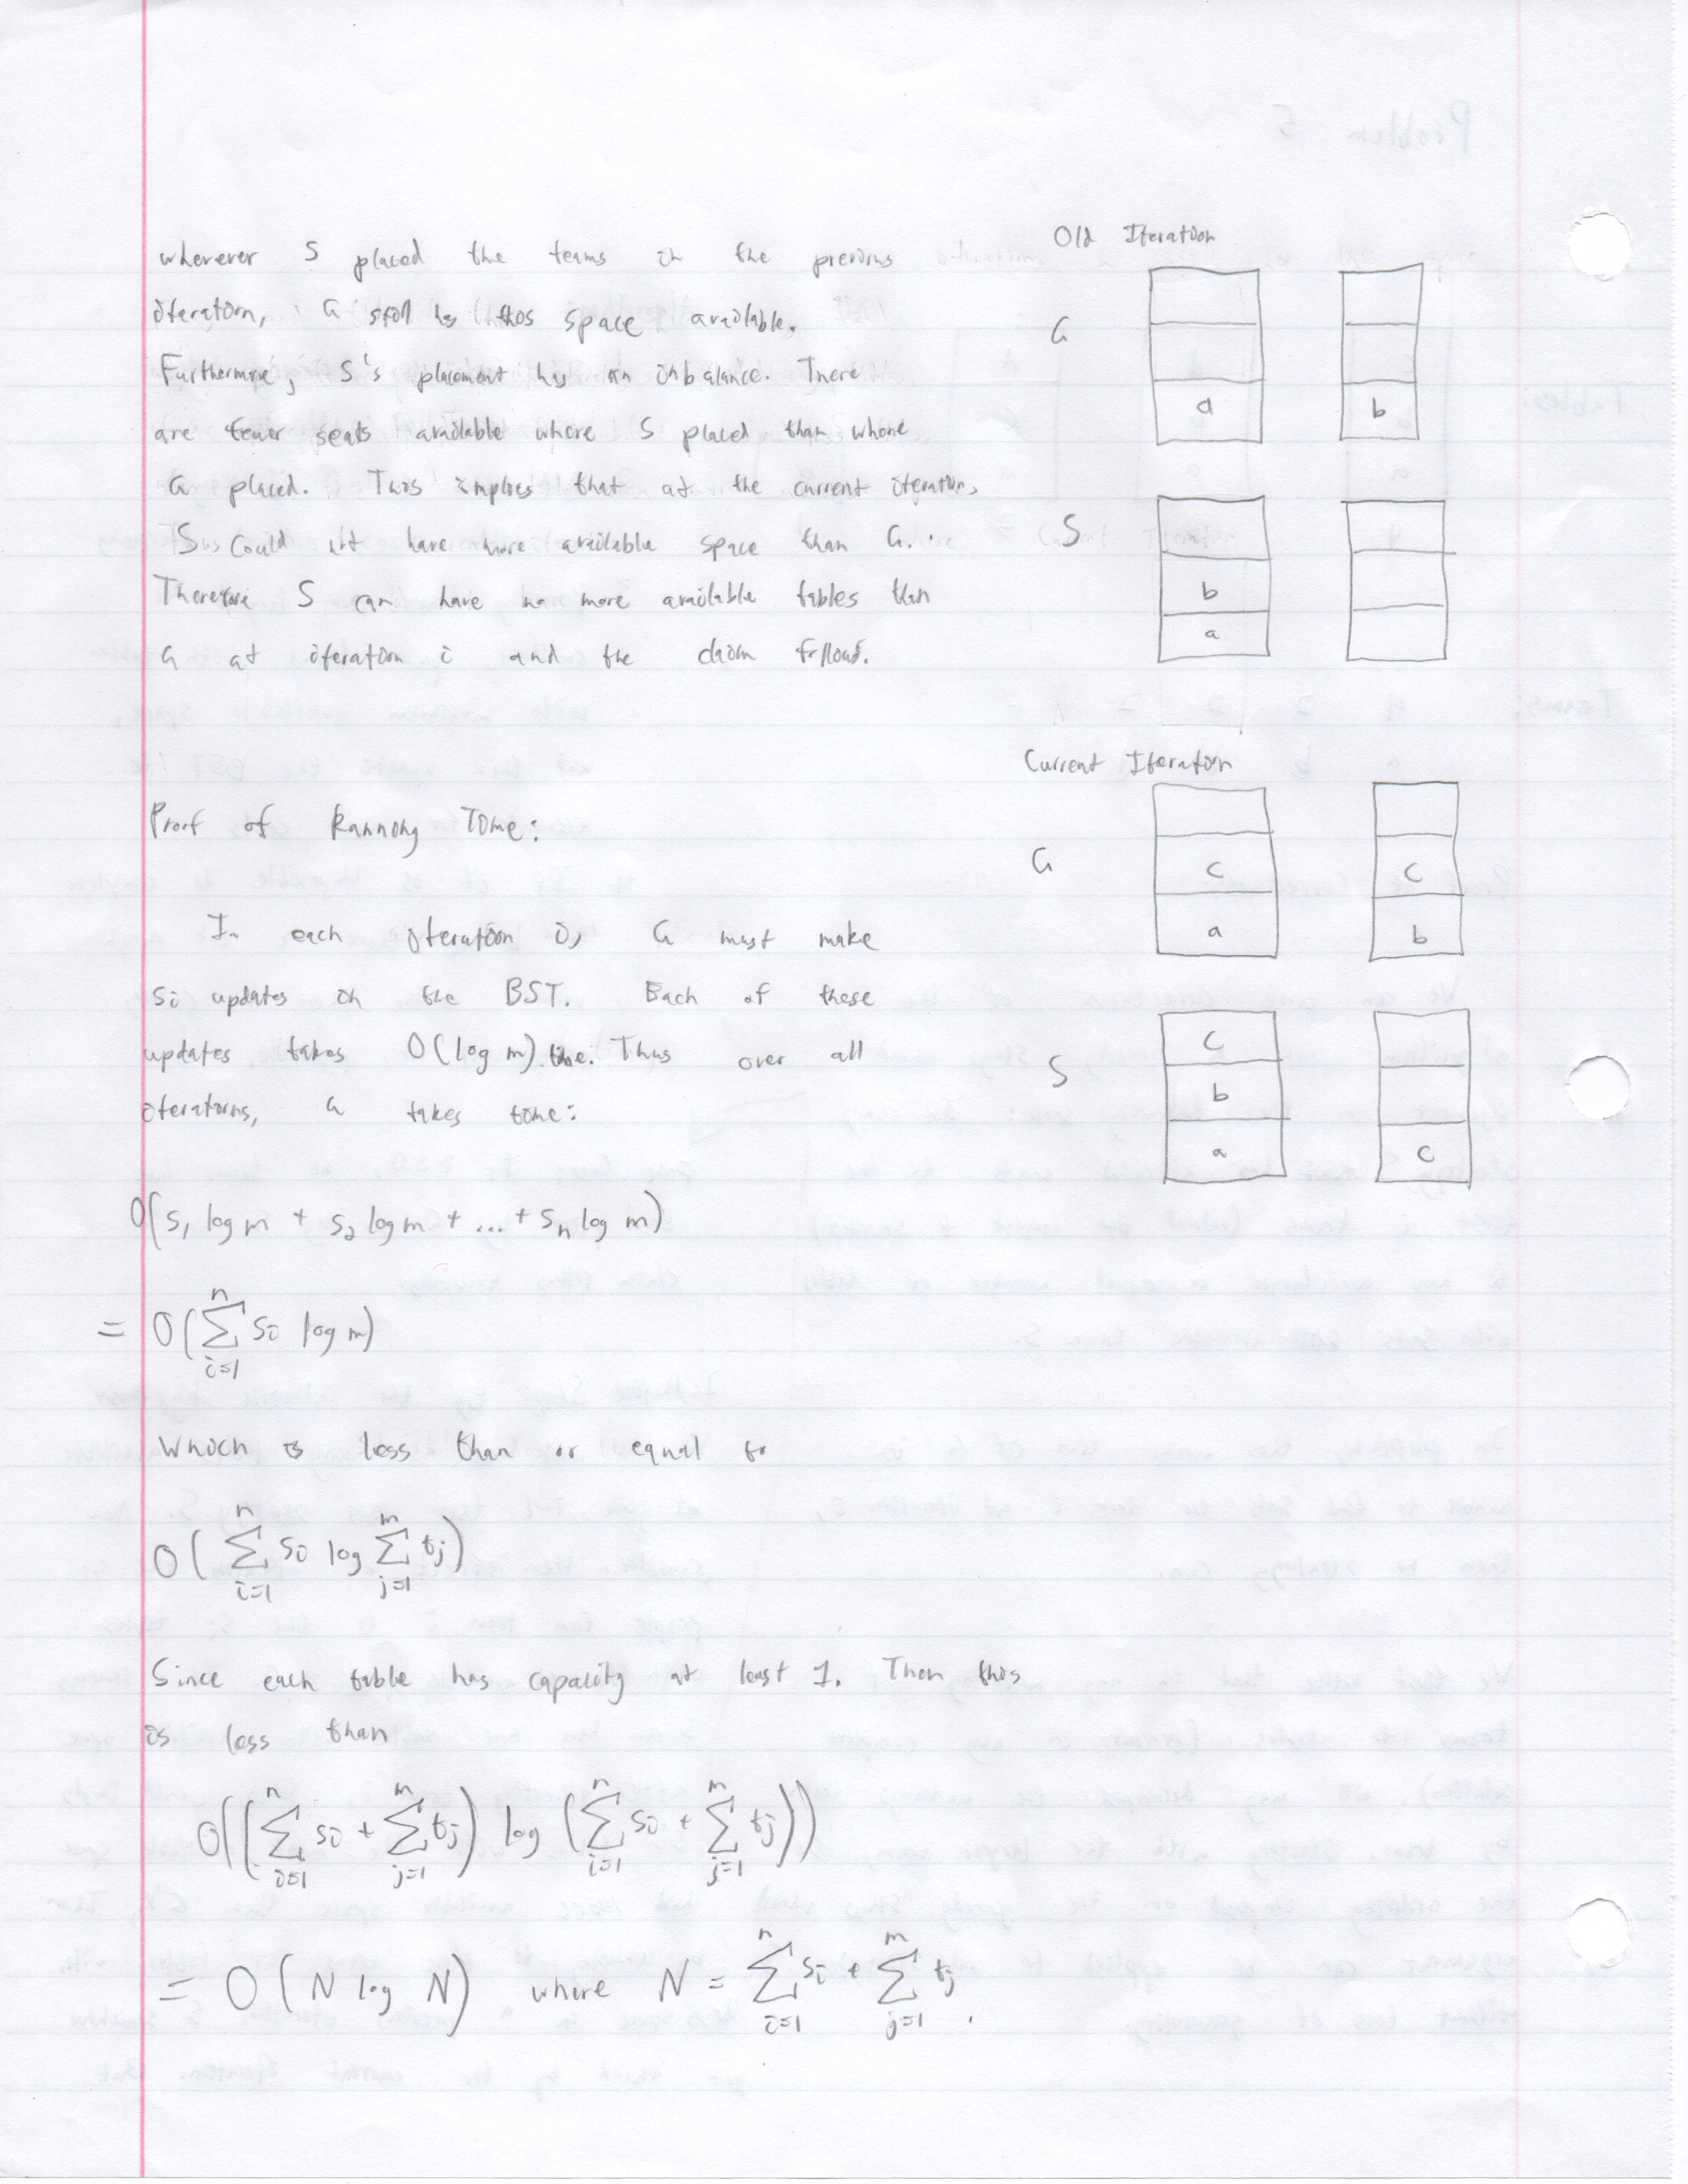 wherever S placed the teams in the previous
iteration, G still has this space available.
Furthermore, S's placement has an imbalance. There
are fewer seats available where S placed than where
G placed. This implies that at the current iteration,
S could not have more available space than G.
Therefore S can have no more available tables than
G at iteration i and the claim follows.
Old Iteration
G
a b
S
b
a
Current Iteration
G
c c
a b
S
c
b
a c
Proof of Running Time:
In each iteration i, G must make
si updates in the BST. Each of these
updates takes O(log m) time. Thus over all
iterations, G takes time:
O(s1 log m + s2 log m + ... + sn log m)
= O(∑_{i=1}^{n} si log m)
Which is less than or equal to
O(∑_{i=1}^{n} si log ∑_{j=1}^{m} tj)
Since each table has capacity at least 1. Then this
is less than
O((∑_{i=1}^{n} si + ∑_{j=1}^{m} tj) log (∑_{i=1}^{n} si + ∑_{j=1}^{m} tj))
= O(N log N) where N = ∑_{i=1}^{n} si + ∑_{j=1}^{m} tj.